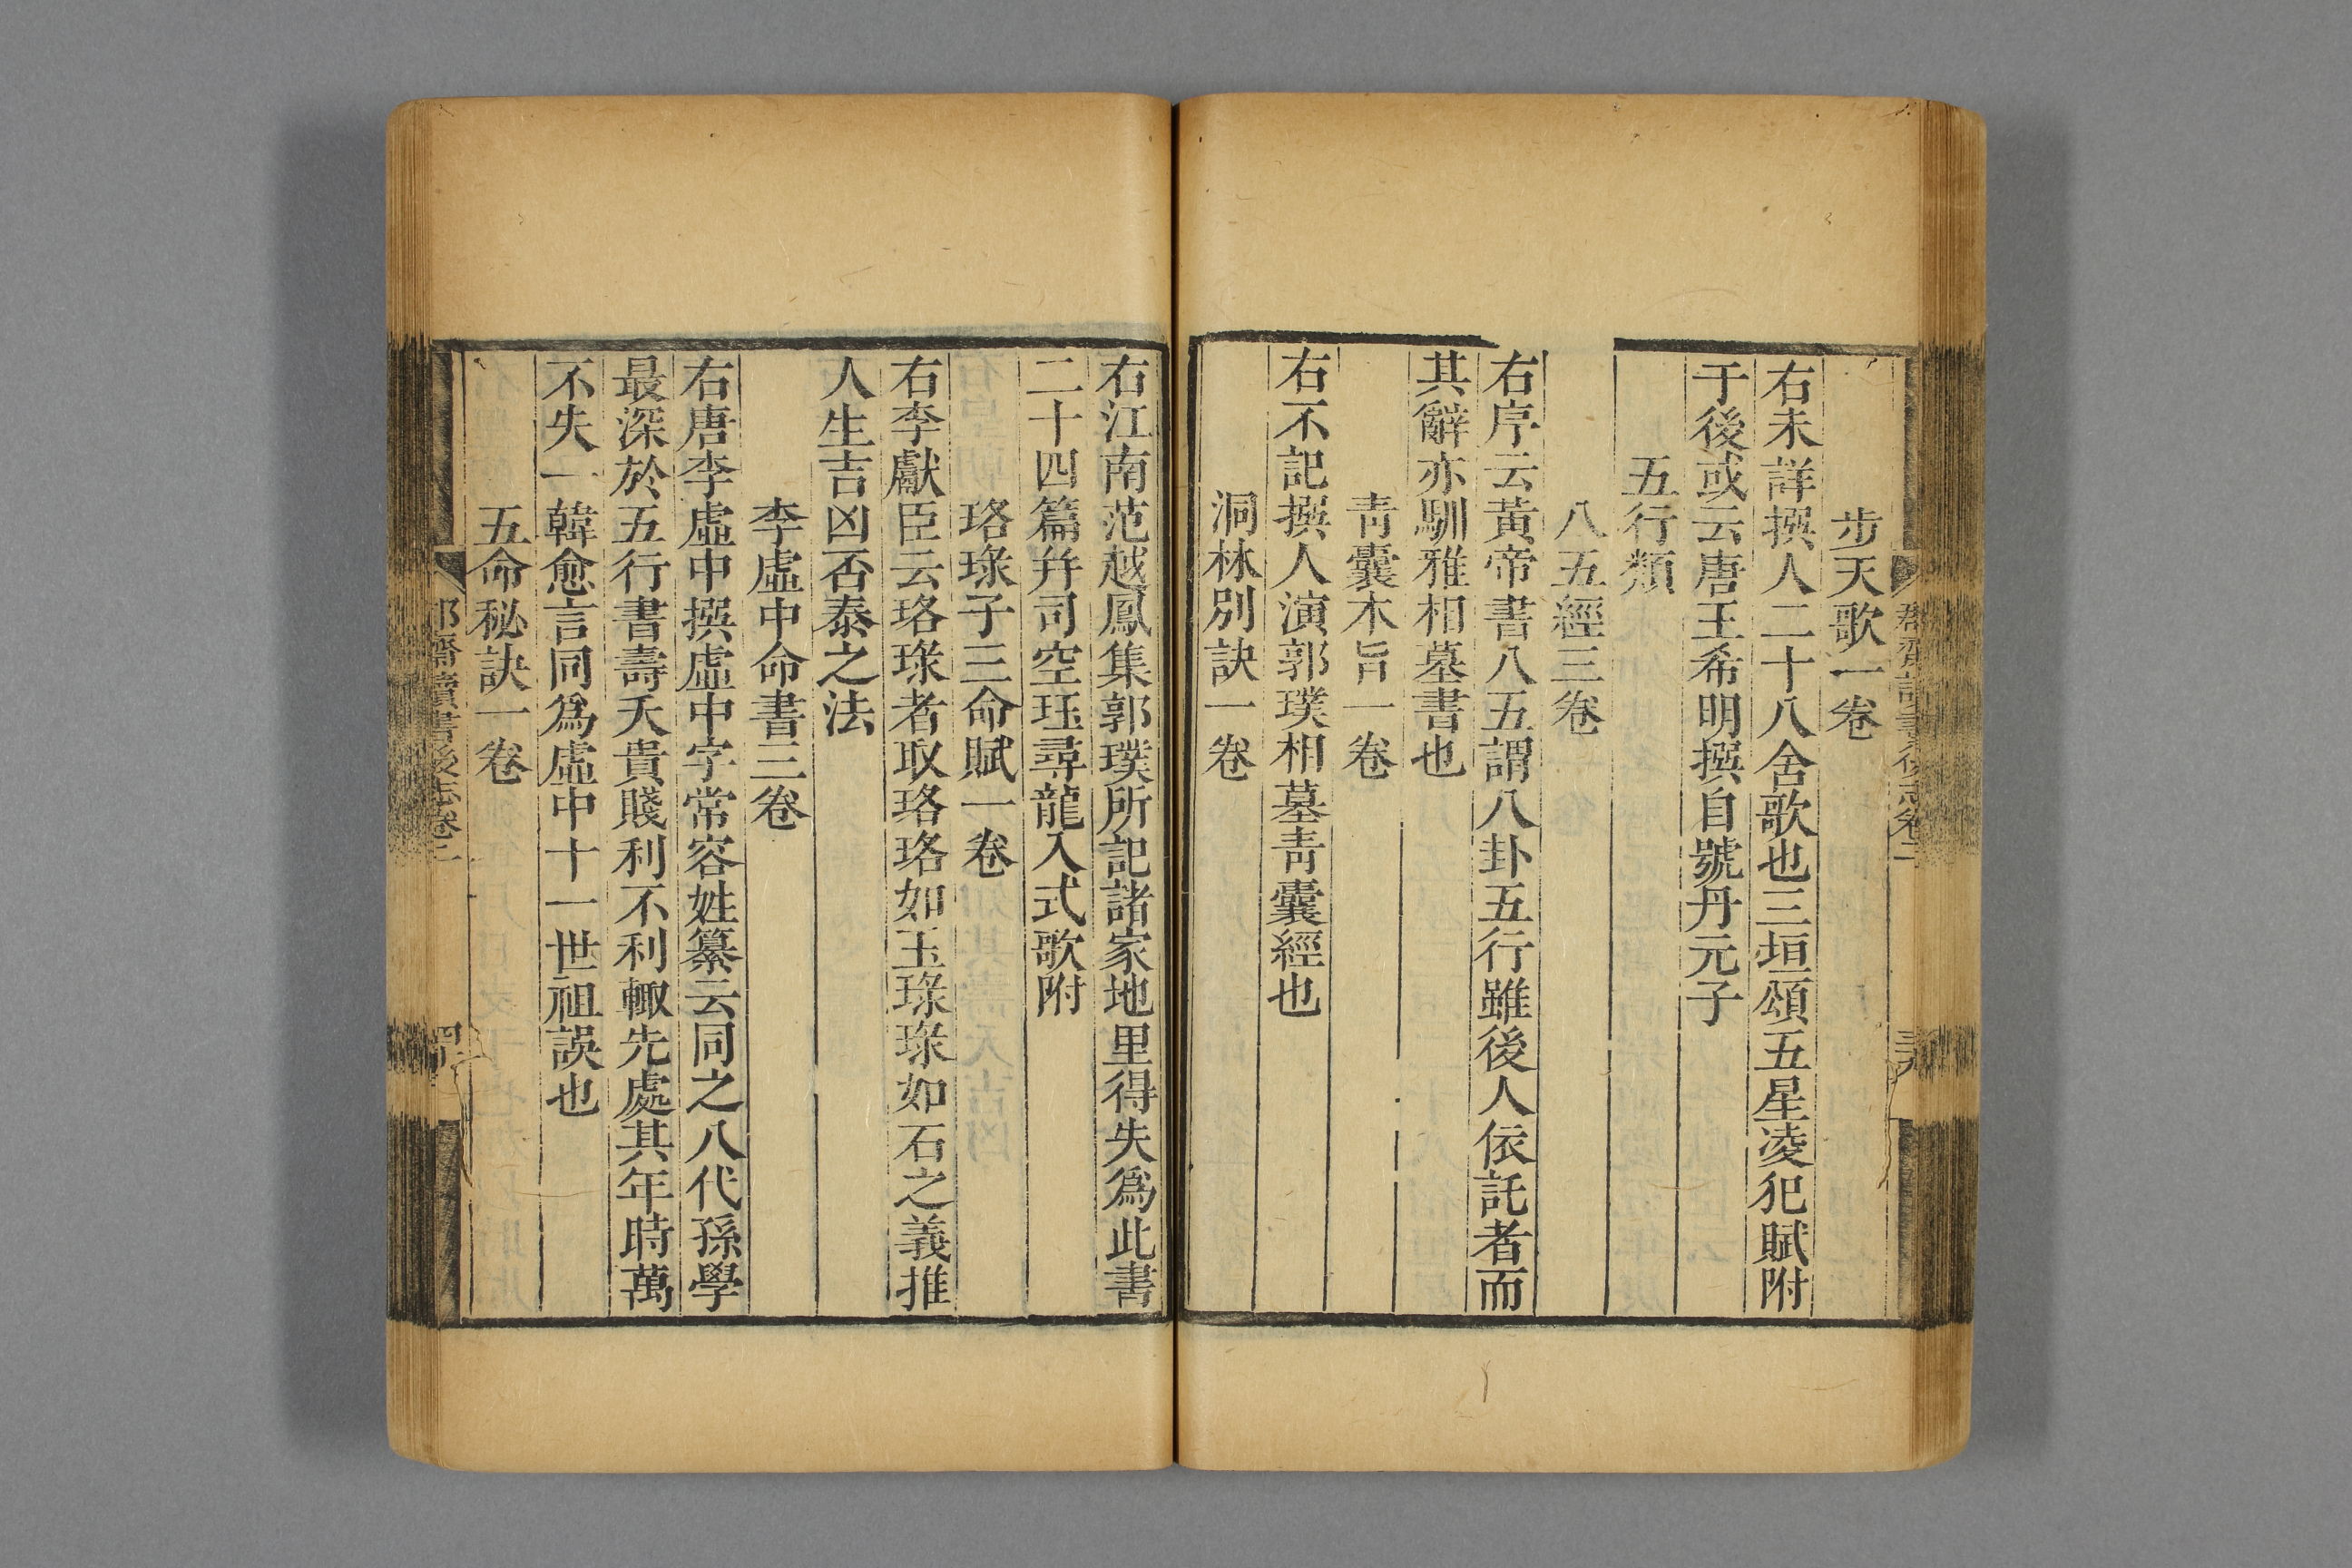 步天歌一卷
右未詳撰人二十八舍歌也三垣頌五星凌犯賦附
于後或云唐王希明撰自號丹元子
五行類
八五經三卷
右序云黃帝書八五謂八卦五行雖後人依託者而
其辭亦馴雅相墓書也
靑囊木旨一卷
右不記撰人演郭璞相墓靑囊經也
洞林別訣一卷
右江南范越鳳集郭璞所記諸家地里得失爲此書
二十四篇幷司空珏尋龍入式歌附
珞琭子三命賦一卷
右李獻臣云珞琭者取珞珞如玉琭琭如石之義推
人生吉凶否泰之法
李虛中命書三卷
右唐李虛中撰虛中字常容姓纂云同之八代孫學
最深於五行書壽夭貴賤利不利輙先處其年時萬
不失一韓愈言同爲虛中十一世祖誤也
五命秘訣一卷
齋讀書後志卷二